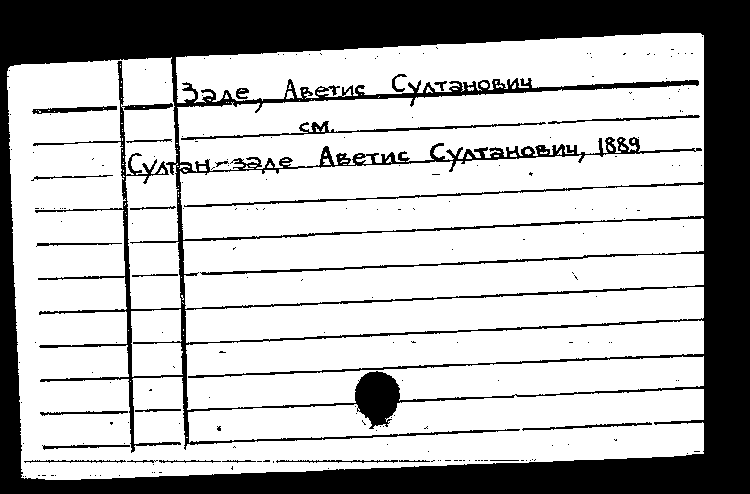 Заде, Аветис Султанович
см.
Султан-заде Аветис Султанович, 1889